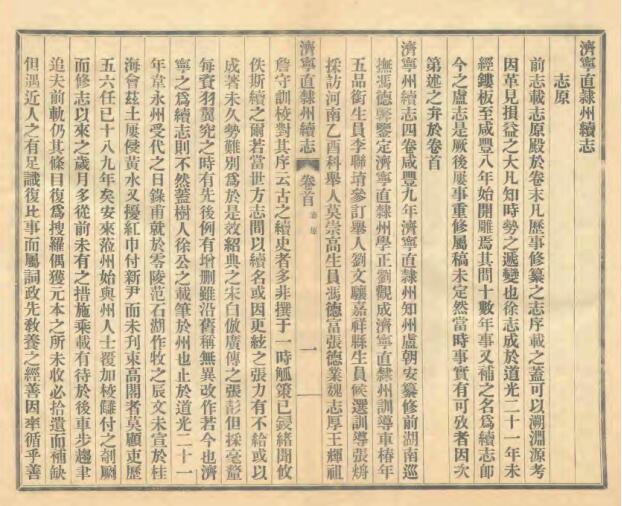 濟寧直隸州續志
志原
前志載志原殿於卷末凡歷事修纂之志序載之蓋可以溯淵源考
因革見損益之大凡知時勢之遞變也徐志成於道光二十一年未
經鏤板至咸豐八年始開雕焉其間十數年事又補之名爲續志卽
今之盧志是厥後屢事重修屬稿未定然當時事實有可攷者因次
第述之弁於卷首
濟寧州續志四卷咸豐九年濟寧直隸州知州盧朝安纂修前湖南巡
撫馮德馨鑒定濟寧直隸州學正劉觀成濟寧直隸州訓導車椿年
五品銜生員李聯堉參訂舉人劉文驤嘉祥縣生員候選訓導張
採訪河南乙酉科舉人莫崇高生員馮德富張德業魏志厚王輝祖
濟寧直隸州續志
卷首
志原
一
詹守訓校對其序云古之續史者多非撰于一時觚策已緩緒聞攸
佚斯續之爾若當世方志間以續名或因更絃之張力有不給或以
成著未久勢難別爲於是效紹典之宋白倣廣傳之張彭但採毫釐
每賚羽翼究之時有先後例有增刪雖沿舊稱無異改作若今也濟
寧之爲續志則不然蓋樹人徐公之載筆於州也止於道光二十一
年韋永州受代之日錄甫就於零陵范石湖作牧之辰文未宣於桂
海會茲土屢侵黃水又擾紅巾付新尹而未刋束高閣者莫顧吏歷
五六任已十八九年矣安來蒞州始與州人士覆加校讎付之剞劂
而修志以來之歲月多從前未有之措施乘載有待於後車步趨聿
追夫前軌仍其條目復爲搜羅偶獲元本之所未收必拾遺而補缺
但遇近人之有足識復比事而屬詞政先敎養之經善因率循乎善